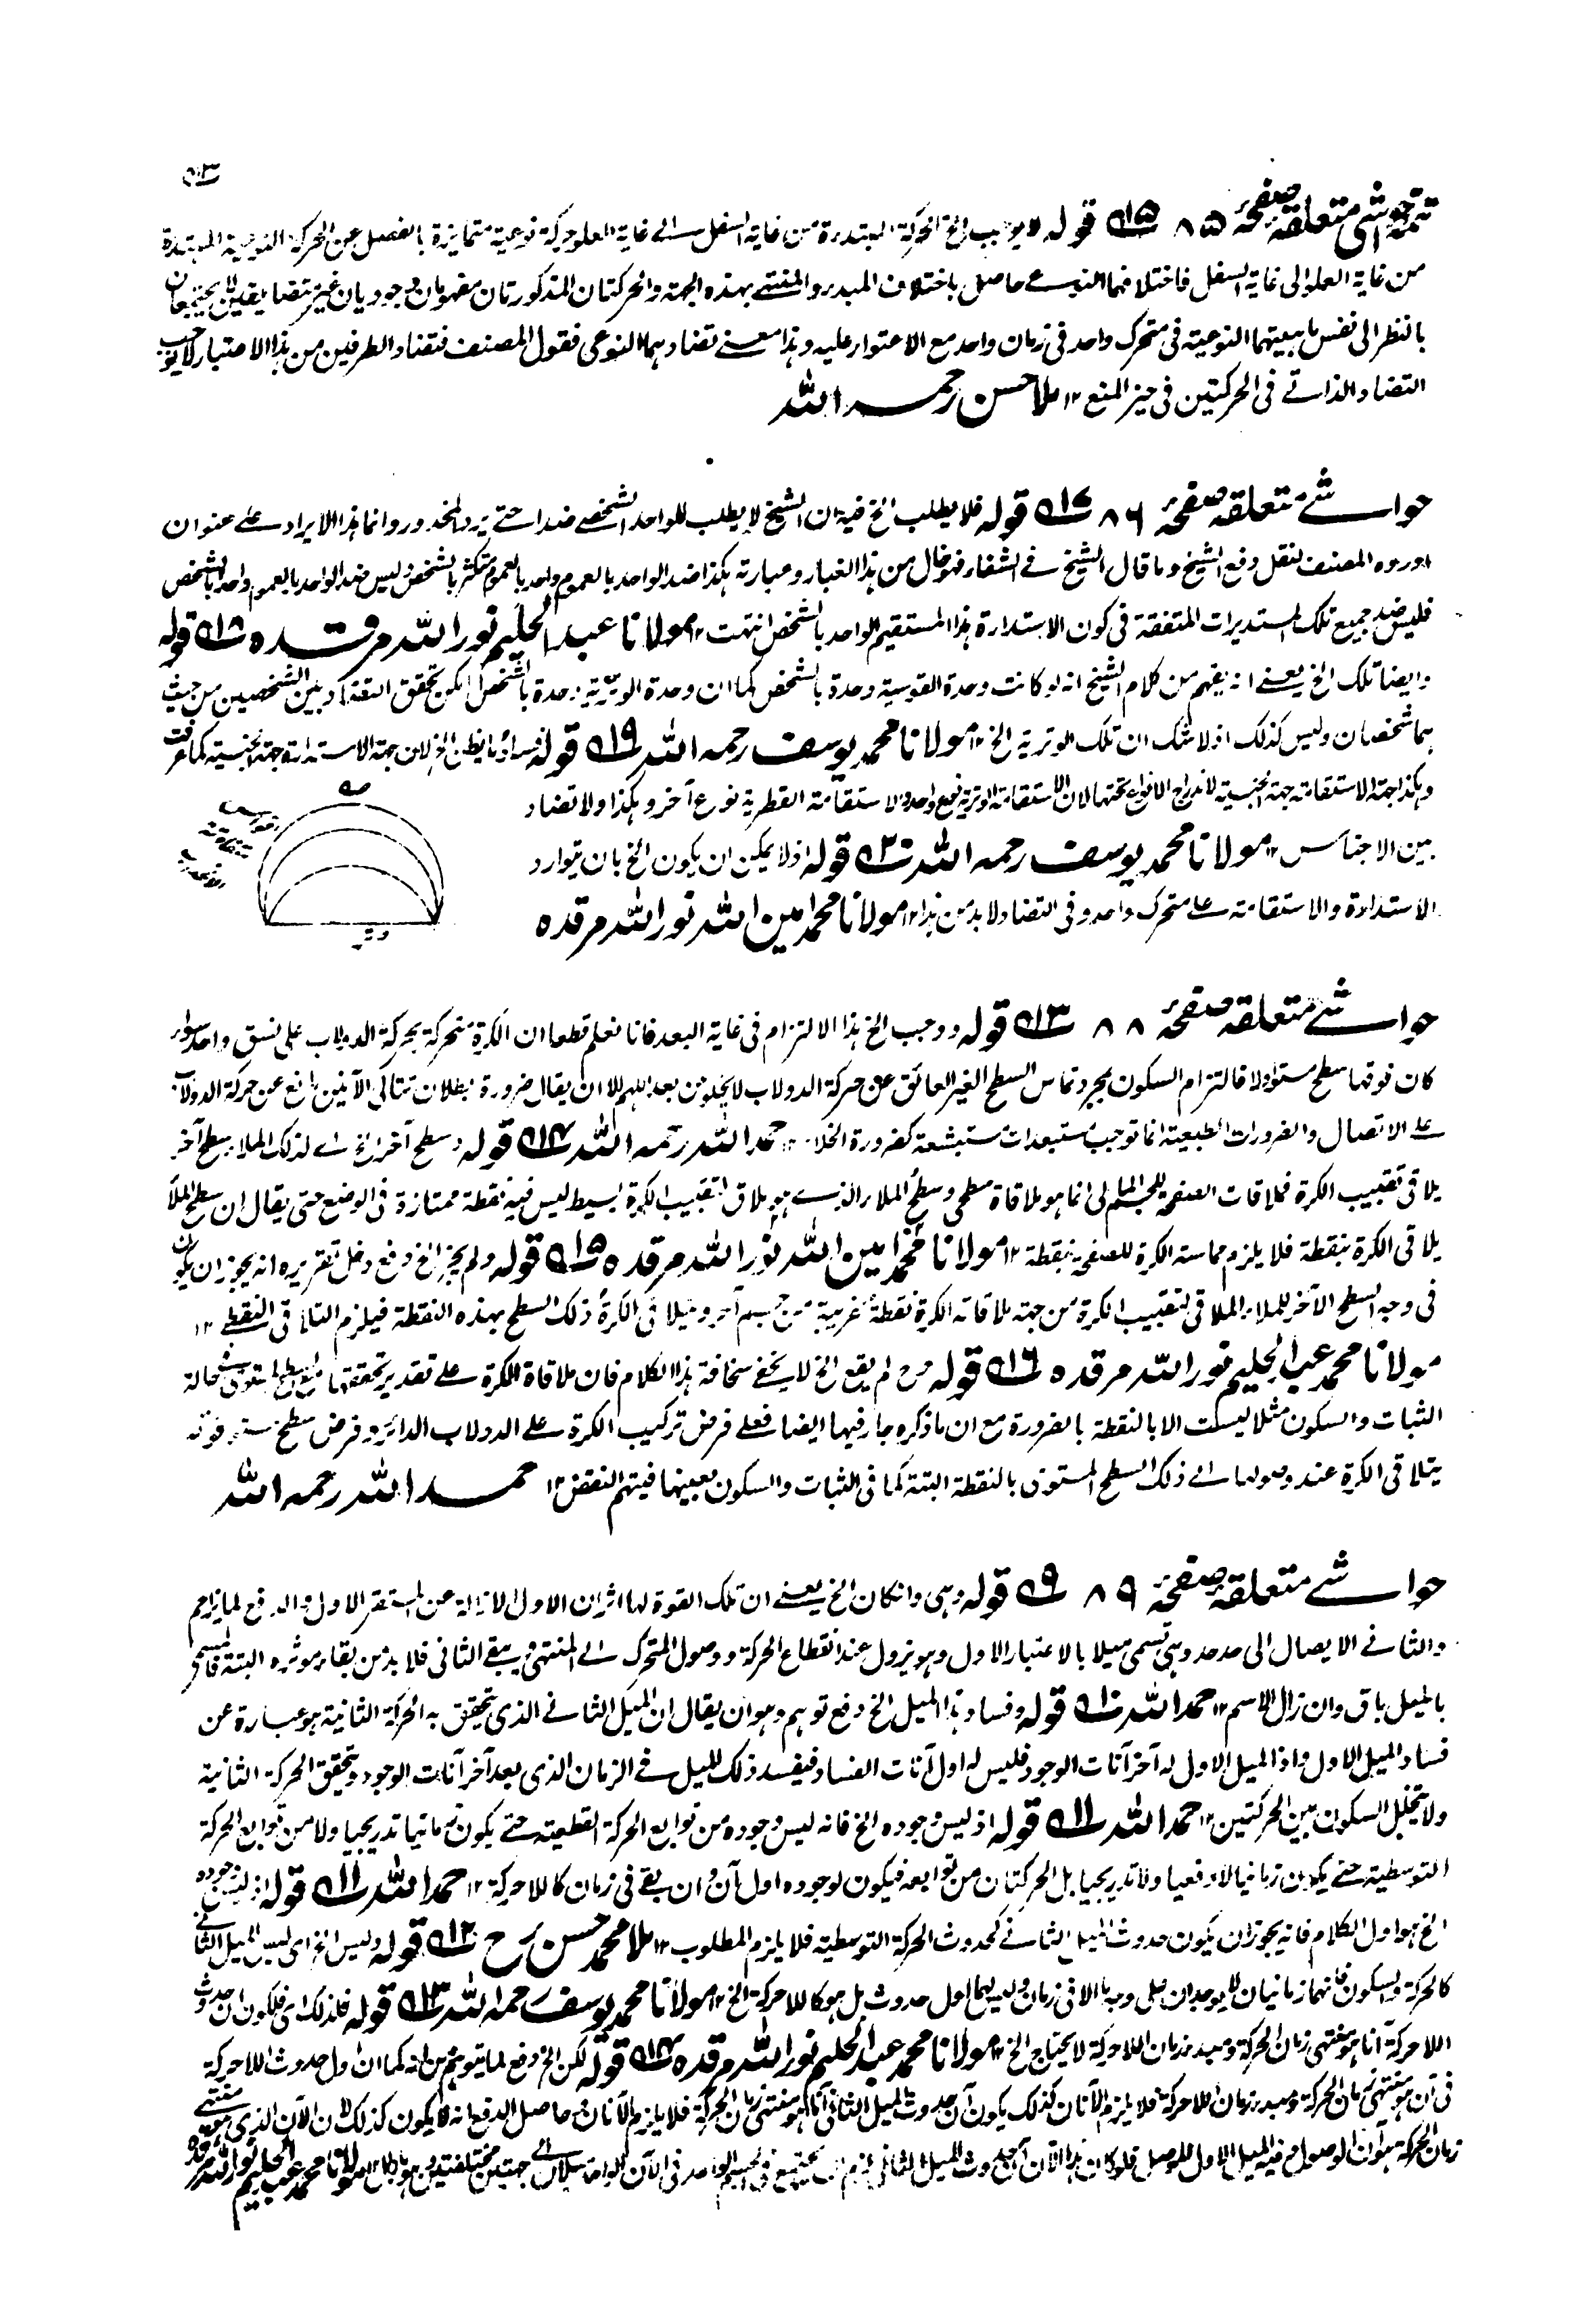 تتمة حواشی متعلقه صفحۀ ۸۵ ۱۵ قوله الخ الحركة المبتدءة من غاية السفل الى غاية العلو حركة نوعية متمايزة بالفصل عن الحركة النوعية المبتدءة
من غاية العلو الى غاية السفل فاختلافهما النوعى حاصل باختلاف المبدء والمنتهى بهذه الجهة والحركتان المذكورتان مفهومان وجوديان غير متضايفين لا يجتمعان
بالنظر الى نفس ماهيتهما النوعية فى متحرك واحد فى زمان واحد مع الاعتوار عليه وهذا معنى تضادهما النوعى فقول المصنف فتضاد الطرفين من هذا الاعتبار لا يوجب
التضاد الذاتى فى الحركتين فى حيز المنع ۱۲ ملا حسن رحمه الله
حواشی متعلقه صفحۀ ۸۶ ۱۷ قوله فلا يطلب الخ فيه ان الشيخ لا يطلب للواحد الشخصى ضدا حتى يرد المحذور وانما هذا الايراد على عنوان
اورده المصنف لنقل دفع الشيخ وما قال الشيخ فى الشفاء فهو خال من هذا الغبار وعبارته هكذا ضد الواحد بالعموم واحد بالعموم متكثر بالشخص وليس ضد الواحد بالعموم واحد بالشخص
فليس ضد جميع تلك المستديرات المتفقة فى كون الاستدارة هذا المستقيم الواحد بالشخص انتهت ۱۲ مولانا عبد الحليم نور الله مرقده ۱۸ قوله
وايضا تلك الخ يعنى انه يفهم من كلام الشيخ انه لو كانت وحدة القوسية وحدة بالشخص كما ان وحدة الوترية وحدة بالشخص امكن تحقق التضاد بين الشخصين من حيث
هما شخصان وليس كذلك اذ لا شك ان تلك الوترية الخ ۱۲ مولانا محمد يوسف رحمه الله ۱۹ قوله فساد ما يظن الخ لان جهة الاستدارة جهة جنسية كما عرفت
وهكذا جهة الاستقامة جهة جنسية لاندراج الانواع تحتها لان الاستقامة الوترية نوع واحد والاستقامة القطرية نوع آخر وهكذا ولا تضاد
بين الاجناس ۱۲ مولانا محمد يوسف رحمه الله ۲۰ قوله اذ لا يمكن ان يكون الخ بان يتوارد
الاستدارة والاستقامة على متحرك واحد وفى التضاد لا بد من هذا ۱۲ مولانا محمد امين الله نور الله مرقده
حواشی متعلقه صفحۀ ۸۸ ۱۳ قوله ووجب الخ هذا الالتزام فى غاية البعد فانا نعلم قطعا ان الكرة متحركة بحركة الدولاب على نسق واحد سواء
كان فوقها سطح مستو اولا فالتزام السكون بمجرد تماس السطح الغير العائق عن حركة الدولاب لا يخلو من بعد اللهم الا ان يقال ضرورة بطلان تتالى الآنين مانع عن حركة الدولاب
على الاتصال والضرورات الطبعية انما توجب مستبعدات مستبشعة كضرورة الخلاء ۱۲ حمد الله رحمه الله ۱۴ قوله وسطح آخر الخ اى لذلك الملاء سطح آخر
يلاقى تقبيب الكرة فملاقات الصفحة للجسم المالى انما هو ملاقاة سطحى وسطح الملاء الذى هو يلاقى تقبيب الكرة بسيط ليس فيه نقطة ممتازة فى الوضع حتى يقال ان سطح الملأ
يلاقى الكرة بنقطة فلا يلزم مماسة الكرة للصفحة بنقطة ۱۲ مولانا محمد امين الله نور الله مرقده ۱۵ قوله ولم يجز الخ دفع دخل تقريره انه يجوز ان يكون
فى وجه السطح الآخر للملاء الملاقى لتقبيب الكرة من جهة ملاقاته الكرة نقطة غريبة من جسم آخر ويلاقى الكرة ذلك السطح بهذه النقطة فيلزم التلاقى النقطى ۱۲
مولانا محمد عبد الحليم نور الله مرقده ۱۶ قوله وح لم يقع الخ لا يخفى سخافة هذا الكلام فان ملاقاة الكرة على تقدير تحققها مع السطح المستوى فى حالة
الثبات والسكون مثلا ليست الا بالنقطة بالضرورة مع ان ما ذكره جار فيها ايضا فعلى فرض تركيب الكرة على الدولاب الدائر وفرض سطح مستو فوقه
يتلاقى الكرة عند وصولها الى ذلك السطح المستوى بالنقطة البتة كما فى الثبات والسكون بعينها فيتم النقض ۱۲ حمد الله رحمه الله
حواشی متعلقه صفحۀ ۸۹ ۹ قوله وهى وان كان الخ يعنى ان تلك القوة لها اثران الاول الازالة عن المستقر الاول والدفع لما يزاحم
والثانى الايصال الى حد حد وهى تسمى ميلا بالاعتبار الاول وهو يزول عند انقطاع الحركة ووصول المتحرك الى المنتهى ويبقى الثانى فلا بد من بقاء موثره البتة فالمسمى
بالميل باق وان زال الاسم ۱۲ حمد الله ۱۰ قوله وفساد هذا الميل الخ دفع توهم وهو ان يقال ان الميل الثانى الذى يتحقق به الحركة الثانية هو عبارة عن
فساد الميل الاول واذا الميل الاول له آخر آنات الوجود فليس له اول آنات الفساد فيفسد ذلك الميل فى الزمان الذى بعد آخر آنات الوجود ويتحقق الحركة الثانية
ولا يتخلل السكون بين الحركتين ۱۲ حمد الله ۱۱ قوله اذ ليس وجوده الخ فانه ليس وجوده من توابع الحركة القطعية حتى يكون زمانيا تدريجيا ولا من توابع الحركة
التوسطية حتى يكون زمانيا لا دفعيا ولا تدريجيا بل الحركتان من توابعه فيكون لوجوده اول آن وان بقى فى زمان كاللاحركة ۱۲ حمد الله ۱۱ قوله اذ ليس وجوده
الخ هو اول الكلام فانه يجوز ان يكون حدوث الميل الثانى كحدوث الحركة التوسطية فلا يلزم المطلوب ۱۲ ملا محمد حسن رح ۱۲ قوله وليس الخ اى ليس الميل الثانى
كالحركة والسكون فانهما زمانيان لا يوجدان الا فى زمان وليس لهما اول حدوث بل هو كاللاحركة الخ ۱۲ مولانا محمد يوسف رحمه الله ۱۳ قوله فلذلك اى فلكون ان حدوث
اللاحركة آنا هو منتهى زمان الحركة ومبدء زمان اللاحركة لا يحتاج الخ ۱۲ مولانا محمد عبد الحليم نور الله مرقده ۱۴ قوله لكن الخ دفع لما يتوهم من انه كما ان اول حدوث اللاحركة
فى آن هو منتهى زمان الحركة ومبدء زمان اللاحركة فلا يلزم الآنان كذلك يكون آن حدوث الميل الثانى آنا هو منتهى زمان الحركة فلا يلزم الآنان حاصل الدفع انه لا يكون كذلك لان الآن الذى هو منتهى
زمان الحركة هو آن الوصول وفيه الميل الاول الموصل فلو كان هذا الآن آن حدوث الميل الثانى لزم ان يجتمع فى الجسم الواحد فى الآن الواحد ميلان الى جهتين مختلفتين وهو باطل ۱۲ مولانا محمد عبد الحليم نور الله مرقده